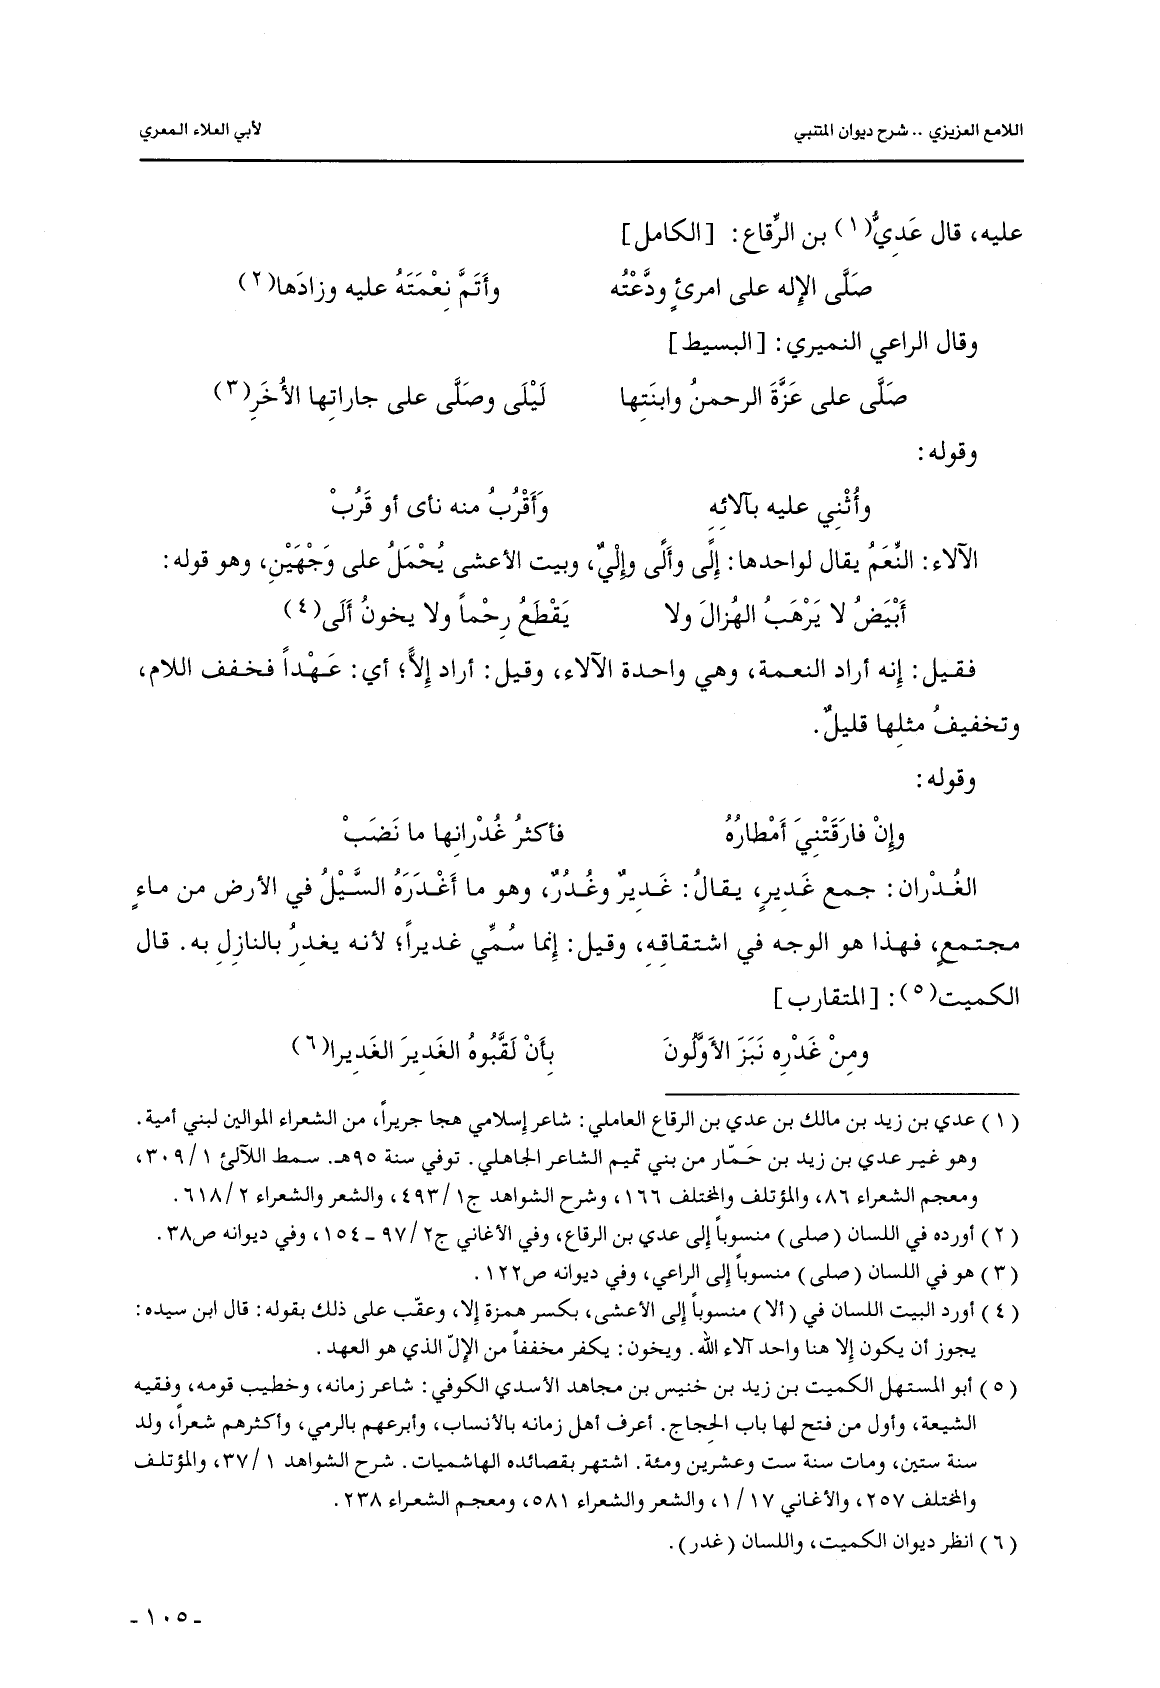 اللامع العزيزي .. شرح ديوان المتنبي
لأبي العلاء المعري
عليه، قال عَدِيُّ(١) بن الرِّقاع: [الكامل]
صَلَّى الإله على امرئٍ ودَّعْتُه وأَتَمَّ نِعْمَتَهُ عليه وزادَها(٢)
وقال الراعي النميري: [البسيط]
صَلَّى على عَزَّةَ الرحمنُ وابنَتِها لَيْلَى وصَلَّى على جاراتِها الأُخَرِ(٣)
وقوله:
وأُثْنِي عليه بآلائِهِ وَأَقْرُبُ منه نأى أو قَرُبْ
الآلاء: النِّعَمُ يقال لواحدها: إِلًى وأَلًى وإِلْيٌ، وبيت الأعشى يُحْمَلُ على وَجْهَيْنِ، وهو قوله:
أَبْيَضُ لا يَرْهَبُ الهُزالَ ولا يَقْطَعُ رِحْماً ولا يخونُ أَلَى(٤)
فقيل: إنه أراد النعمة، وهي واحدة الآلاء، وقيل: أراد إلاًّ؛ أي: عَهْداً فخفف اللام،
وتخفيفُ مثلِها قليلٌ.
وقوله:
وإنْ فارَقَتْنِيَ أَمْطارُهُ فأكثرُ غُدْرانِها ما نَضَبْ
الغُدْران: جمع غَدِيرٍ، يقالُ: غَدِيرٌ وغُدُرٌ، وهو ما أَغْدَرَهُ السَّيْلُ في الأرض من ماءٍ
مجتمعٍ، فهذا هو الوجه في اشتقاقِهِ، وقيل: إنما سُمِّي غديراً؛ لأنه يغدرُ بالنازلِ به. قال
الكميت(٥): [المتقارب]
ومِنْ غَدْرِه نَبَزَ الأَوَّلُونَ بِأَنْ لَقَّبُوهُ الغَدِيرَ الغَدِيرا(٦)
(١) عدي بن زيد بن مالك بن عدي بن الرقاع العاملي: شاعر إسلامي هجا جريراً، من الشعراء الموالين لبني أمية.
وهو غير عدي بن زيد بن حَمّار من بني تميم الشاعر الجاهلي. توفي سنة ٩٥هـ. سمط اللآلئ ١/ ٣٠٩،
ومعجم الشعراء ٨٦، والمؤتلف والمختلف ١٦٦، وشرح الشواهد ج١/ ٤٩٣، والشعر والشعراء ٢/ ٦١٨.
(٢) أورده في اللسان (صلى) منسوباً إلى عدي بن الرقاع، وفي الأغاني ج٢/ ٩٧ ـ ١٥٤، وفي ديوانه ص٣٨.
(٣) هو في اللسان (صلى) منسوباً إلى الراعي، وفي ديوانه ص١٢٢.
(٤) أورد البيت اللسان في (ألا) منسوباً إلى الأعشى، بكسر همزة إلا، وعقّب على ذلك بقوله: قال ابن سيده:
يجوز أن يكون إلا هنا واحد آلاء الله. ويخون: يكفر مخففاً من الإلّ الذي هو العهد.
(٥) أبو المستهل الكميت بن زيد بن خنيس بن مجاهد الأسدي الكوفي: شاعر زمانه، وخطيب قومه، وفقيه
الشيعة، وأول من فتح لها باب الحِجاج. أعرف أهل زمانه بالأنساب، وأبرعهم بالرمي، وأكثرهم شعراً، ولد
سنة ستين، ومات سنة ست وعشرين ومئة. اشتهر بقصائده الهاشميات. شرح الشواهد ١/ ٣٧، والمؤتلف
والمختلف ٢٥٧، والأغاني ١٧/ ١، والشعر والشعراء ٥٨١، ومعجم الشعراء ٢٣٨.
(٦) انظر ديوان الكميت، واللسان (غدر).
ـ ١٠٥ ـ